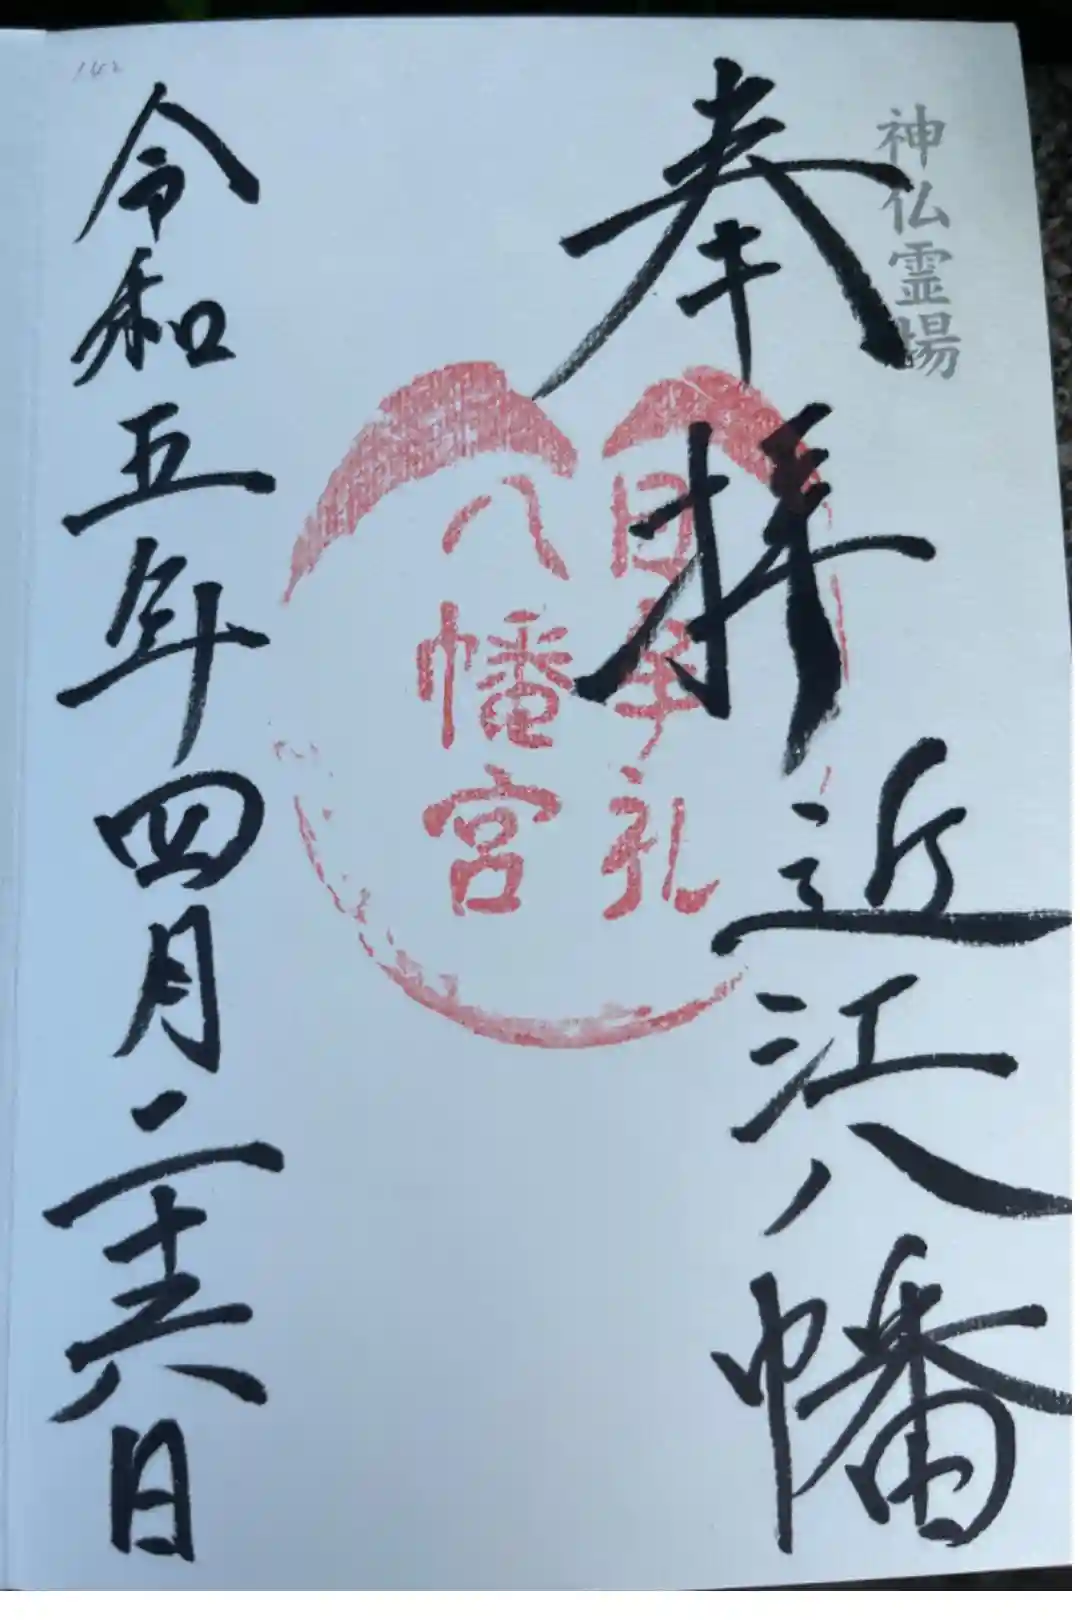 神仏霊場
奉拝
近江八幡
日牟礼
八幡宮
令和五年四月二十六日
142